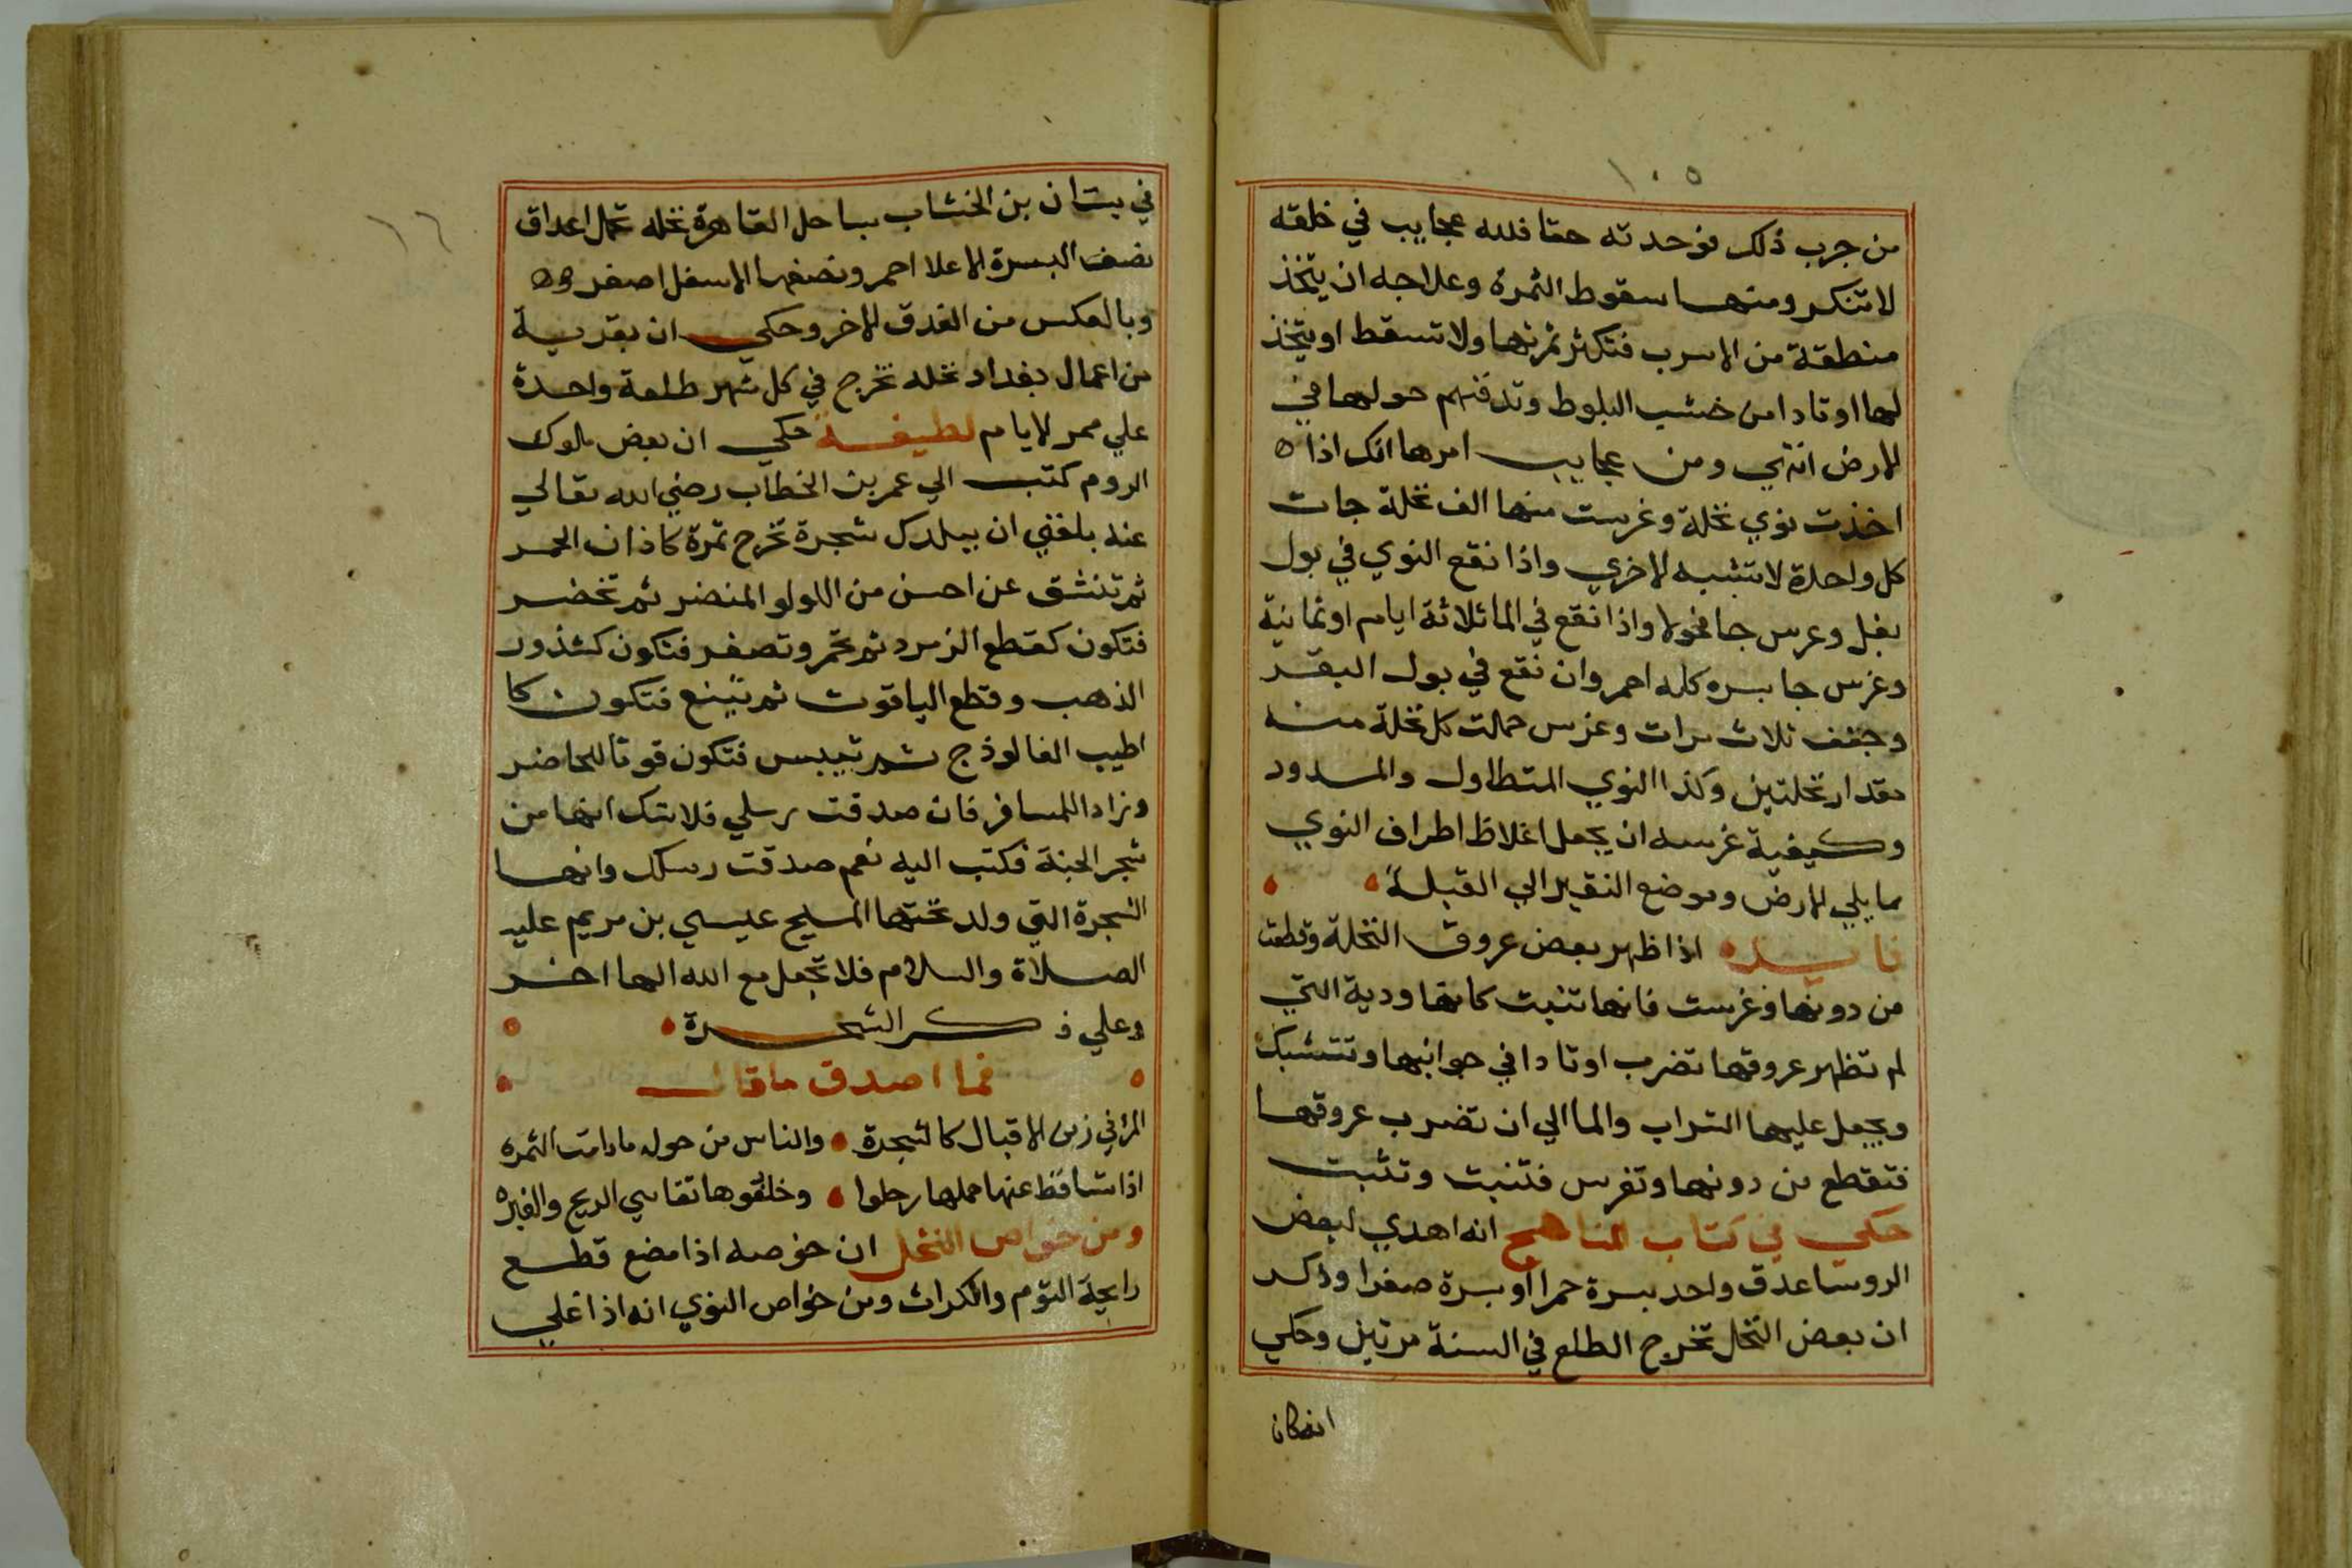 ١٠٥
من جرب ذلك فوجدته حقا فلله عجايب في خلقه
لا تنكر ومنها سقوط الثمرة وعلاجه ان يتخذ
منطقة من الاسرب فتكثر ثمرتها ولا تسقط او يتخذ
لها اوتادا من خشب البلوط وتدفنهم حولها في
الارض انتهي ومن عجايب امرها انك اذا ه
اخذت نوي نخلة وغرست منها الف نخلة جات
كل واحدة لا تشبه الاخري واذا نقع النوي في بول
بغل وغرس جا فحولا واذا نقع في الما ثلاثة ايام او ثمانية
وغرس جا بسره كله احمر وان نقع في بول البقر
وجفف ثلاث مرات وغرس حملت كل نخلة منه
مقدار نخلتين وكذا النوي المتطاول والمسدود
وكيفية غرسه ان يجعل اغلاظ اطراف النوي
مما يلي الارض وموضع النقير الي القبلة
فايده اذا ظهر بعض عروق النخلة وقطعت
من دونها وغرست فانها تنبت كانها ودية التي
لم تظهر عروقها تضرب اوتادا في جوانبها وتتشبك
ويجعل عليها التراب والما الي ان تضرب عروقها
فتقطع من دونها وتغرس فتنبت وتثبت
حكي في كتاب المناهج انه اهدي لبعض
الروسا عدق واحد بسرة حمرا او بسرة صفرا وذكر
ان بعض النخل تخرج الطلع في السنة مرتين وحكي
انه كان
١٦
في بستان بن الخشاب بساحل القاهرة نخله تحمل اعداق
نصف البسرة الاعلا احمر ونصفها الاسفل اصفر
وبالعكس من العدق الاخر وحكي ان بقرية
من اعمال بغداد نخله تخرج في كل شهر طلعة واحدة
علي ممر الايام لطيفة حكي ان بعض ملوك
الروم كتب الي عمر بن الخطاب رضي الله تعالي
عنه بلغني ان ببلدك شجرة تخرج ثمرة كاذان الحمر
ثم تنشق عن احسن من اللولو المنضر ثم تخضر
فتكون كقطع الزمرد ثم تحمر وتصفر فتكون كشذور
الذهب وقطع الياقوت ثم تينع فتكون كا
اطيب الفالوذج ثم تيبس فتكون قوتا للحاضر
وزادا للمسافر فان صدقت رسلي فلا شك انها من
شجر الجنة فكتب اليه نعم صدقت رسلك وانها
الشجرة التي ولد تحتها المسيح عيسي بن مريم عليه
الصلاة والسلام فلا تجعل مع الله الها اخر
وعلي ذكر الشجرة
فما اصدق ما قال
المرا في زمن الاقبال كالشجرة والناس من حوله ما دامت الثمره
اذا تساقط عنها حملها رحلوا وخلفوها تقاسي الريح والغبره
ومن خواص النخل ان خوصه اذا مضع قطع
رايحة التوم والكراث ومن خواص النوي انه اذا غلي